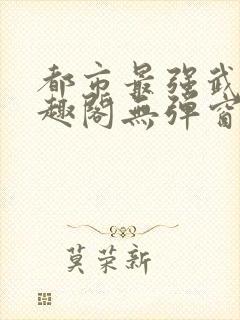 都市最强武
趣阁無弹窗
莫荣新